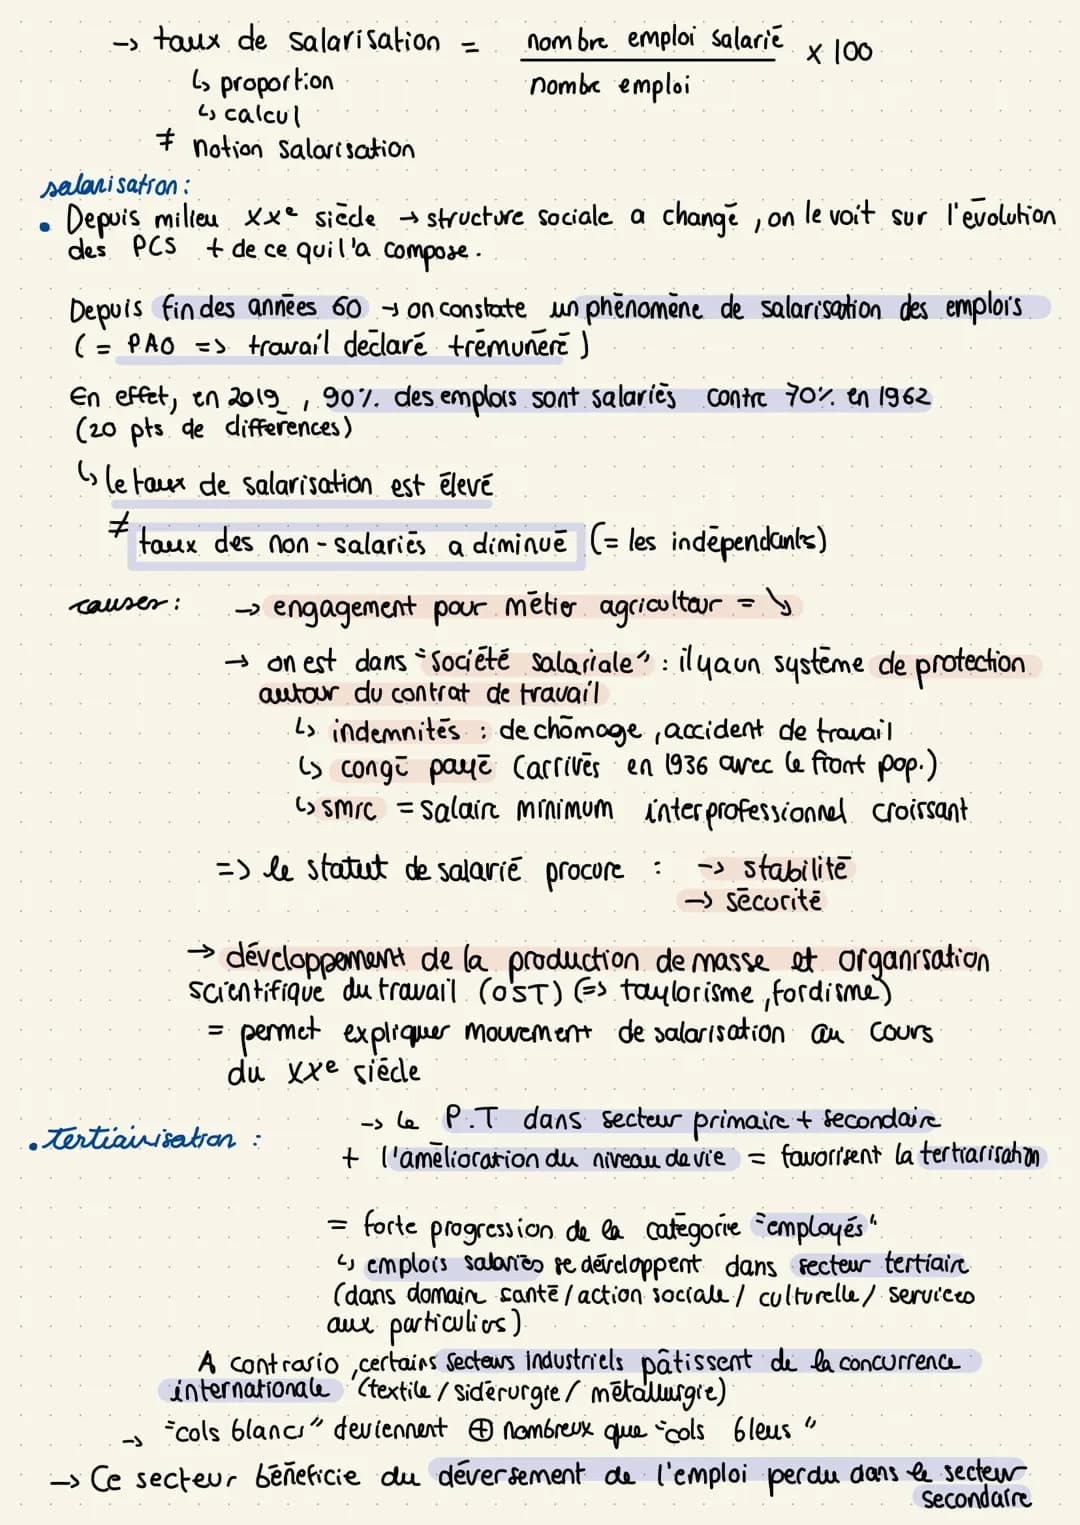 → taux de salarisation = nombre emploi salarié x 100
nombre emploi
↳ proportion
↳ calcul
≠ notion salarisation
salarisation :
• Depuis milieu XXe siècle → structure sociale a changé, on le voit sur l'évolution
des PCS + de ce qui l'a compose.
Depuis fin des années 60 → on constate un phénomène de salarisation des emplois
( = PAO => travail déclaré + rémunéré )
En effet, en 2019, 90% des emplois sont salariés contre 70% en 1962
(20 pts de différences)
↳ le taux de salarisation est élevé
≠ taux des non-salariés a diminué (= les indépendants)
causes : → engagement pour métier agriculteur = ↘
→ on est dans "société salariale" : il y a un système de protection
autour du contrat de travail
↳ indemnités : de chômage, accident de travail
↳ congé payé (arrivés en 1936 avec le front pop.)
↳ smic = salaire minimum interprofessionnel croissant
=> le statut de salarié procure : → stabilité
→ sécurité
→ développement de la production de masse et organisation
scientifique du travail (OST) (=> taylorisme, fordisme)
= permet expliquer mouvement de salarisation au cours
du XXe siècle
• tertiairisation : → le P.T dans secteur primaire + secondaire
+ l'amélioration du niveau de vie = favorisent la tertiarisation
= forte progression de la catégorie "employés"
↳ emplois salariés se développent dans secteur tertiaire
(dans domaine santé / action sociale / culturelle / services
aux particuliers)
A contrario, certains secteurs industriels pâtissent de la concurrence
internationale (textile / sidérurgie / métallurgie)
→ "cols blancs" deviennent ⊕ nombreux que "cols bleus"
→ Ce secteur bénéficie du déversement de l'emploi perdu dans le secteur
secondaire